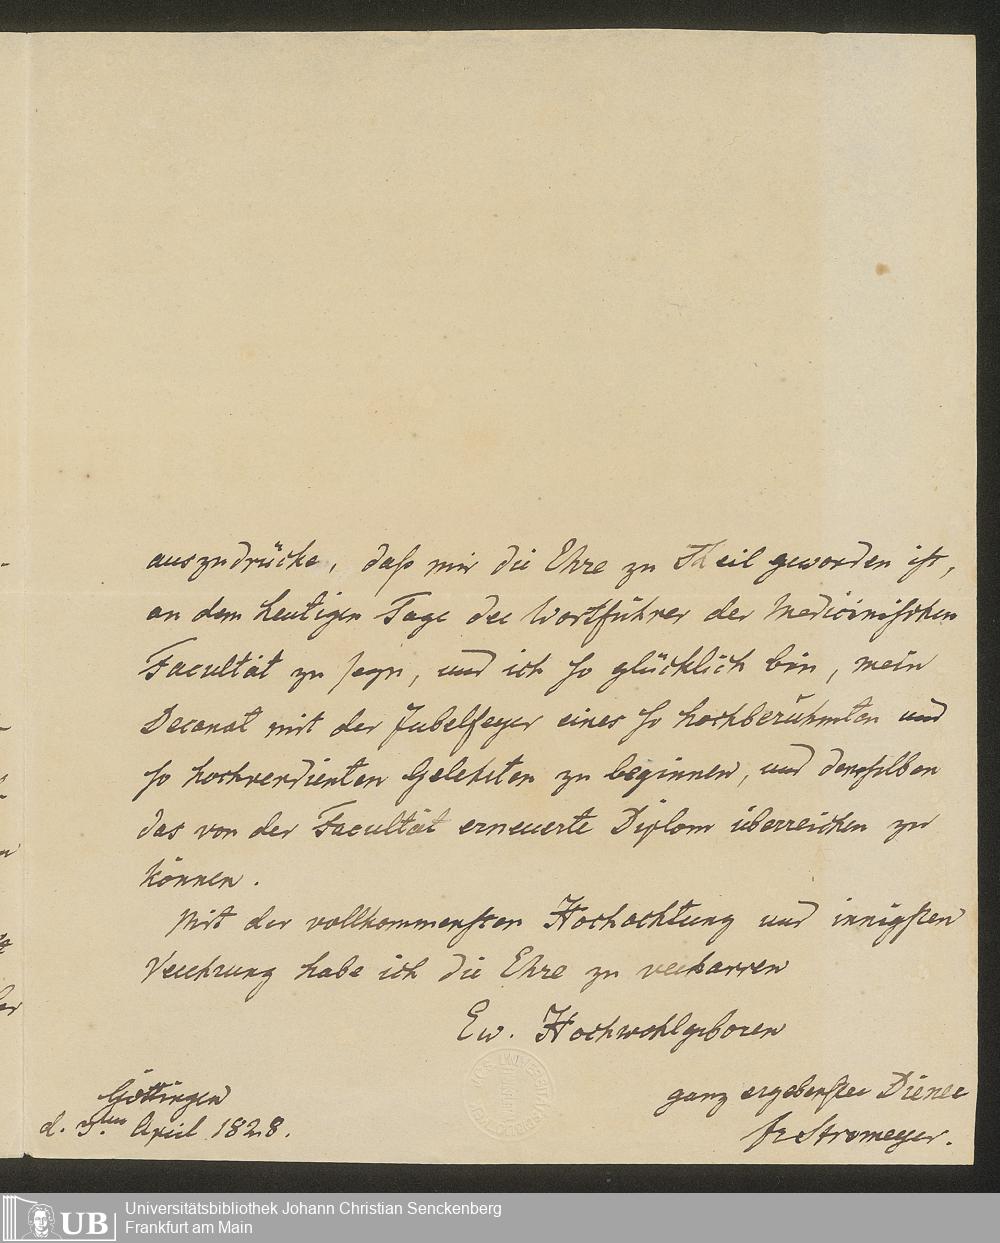 auszudrücke, daß mir die Ehre zu Theil geworden ist,
an dem heutigen Tage der Wortführer der Medicinischen
Facultät zu seyn, und ich so glücklich bin, mein
Decanat mit der Jubelfeyer eines so hochberühmten und
so hochverdienten Gelehrten zu beginnen, und demselben
das von der Facultät erneuerte Diplom überreichen zu
können.
Mit der vollkommensten Hochachtung und innigsten
Verehrung habe ich die Ehre zu verharren
Ew. Hochwohlgeboren
Göttingen
ganz ergebenster Diener
d. 3ten April 1828.
Fr Stromeyer.
UB
Universitätsbibliothek Johann Christian Senckenberg
Frankfurt am Main